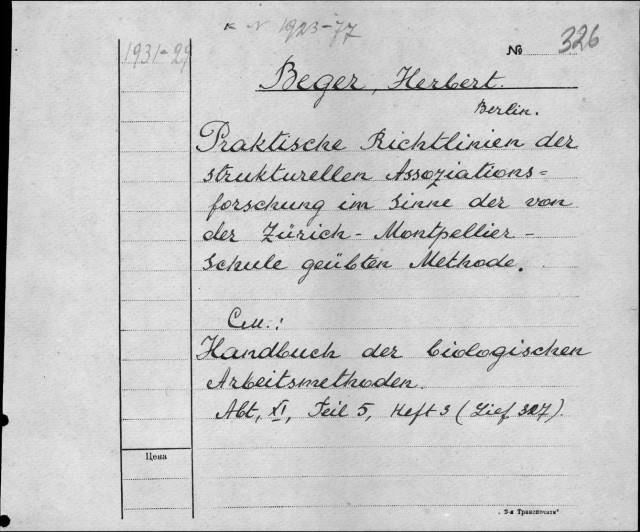 к № 1923-77
1931-29
№ 326
Beger, Herbert.
Berlin.
Praktische Richtlinien der
strukturellen Assoziations=
forschung im Sinne der von
der Zürich - Montpellier -
Schule geübten Methode.
См.:
Handbuch der biologischen
Arbeitsmethoden.
Abt, XI, Teil 5, Heft 3 (Lief 327).
Цена
„5-я Транспечати"